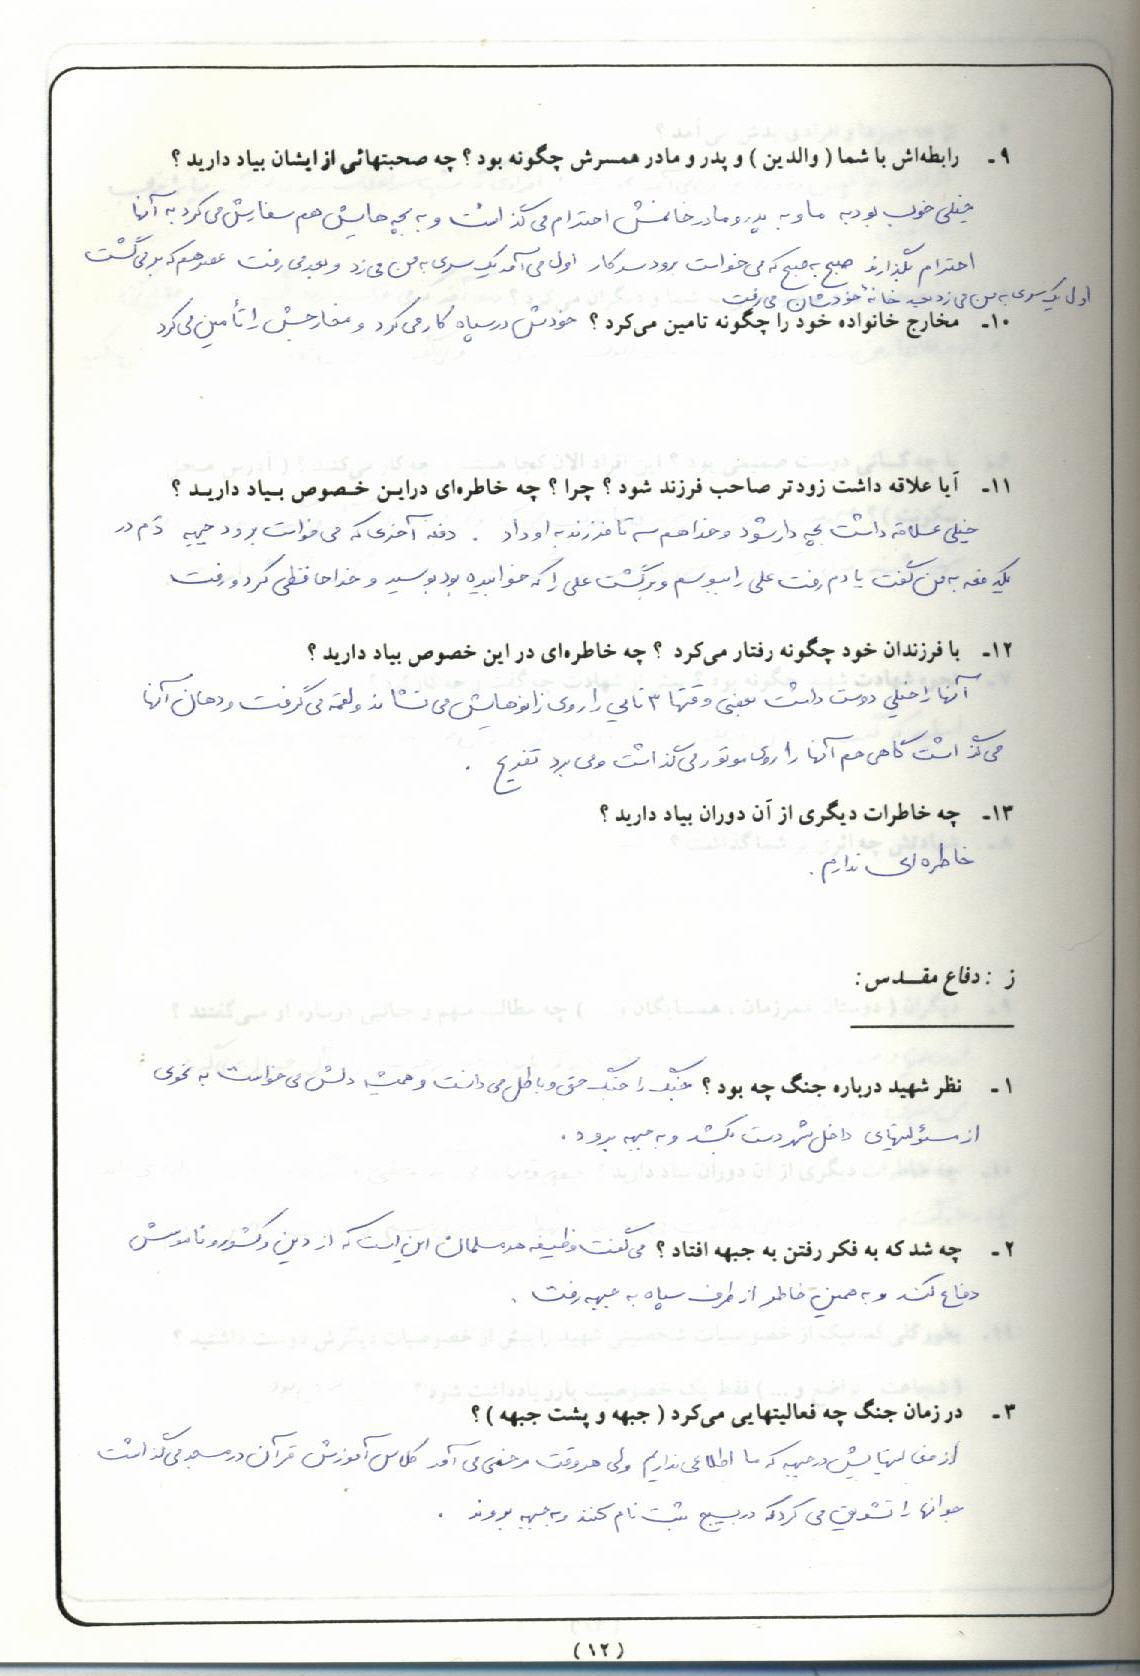 ۹ـ رابطه‌اش با شما ( والدین ) و پدر و مادر همسرش چگونه بود ؟ چه صحبتهائی از ایشان بیاد دارید ؟
خیلی خوب بود به ما و به پدر و مادر خانمش احترام می گذاشت و به بچه هایش هم سفارش می کرد به آنها
احترام بگذارند صبح به صبح که می خواست برود سر کار اول می آمد یک سری به من می زد و بعد می رفت عصر هم که بر می گشت
اول یک سری به من می زد بعد خانهٔ خودشان می رفت
۱۰ـ مخارج خانواده خود را چگونه تامین می‌کرد ؟ خودش در سپاه کار می کرد و مخارجش را تأمین می کرد
۱۱ـ آیا علاقه داشت زودتر صاحب فرزند شود ؟ چرا ؟ چه خاطره‌ای دراین خصوص بیاد دارید ؟
خیلی علاقه داشت بچه دار شود و خدا هم سه تا فرزند به او داد . دفعه آخری که می خواست برود جبهه دَم در
یکدفعه به من گفت یادم رفت علی را ببوسم و برگشت علی را که خوابیده بود بوسید و خداحافظی کرد و رفت
۱۲ـ با فرزندان خود چگونه رفتار می‌کرد ؟ چه خاطره‌ای در این خصوص بیاد دارید ؟
آنها را خیلی دوست داشت بعضی وقتها ۳ تایی را روی زانوهایش می نشاند و لقمه می گرفت و دهان آنها
می گذاشت گاهی هم آنها را روی موتور می گذاشت و می برد تفریح .
۱۳ـ چه خاطرات دیگری از آن دوران بیاد دارید ؟
خاطره ای ندارم .
ز : دفاع مقـدس :
۱ ـ نظر شهید درباره جنگ چه بود ؟ جنگ را جنگ حق و باطل می دانست و همیشه دلش می خواست به نحوی
از مسئولیتهای داخل شهر دست بکشد و به جبهه برود .
۲ ـ چه شد که به فکر رفتن به جبهه افتاد ؟ می گفت وظیفه هر مسلمان این است که از دین و کشور و ناموسش
دفاع کند و به همین خاطر از طرف سپاه به جبهه رفت .
۳ ـ در زمان جنگ چه فعالیتهایی می‌کرد ( جبهه و پشت جبهه ) ؟
از فعالیتهایش در جبهه که ما اطلاعی نداریم ولی هر وقت مرخصی می آمد کلاس آموزش قرآن در مسجد می گذاشت
جوانها را تشویق می کرد که در بسیج ثبت نام کنند و به جبهه بروند .
( ۱۲ )